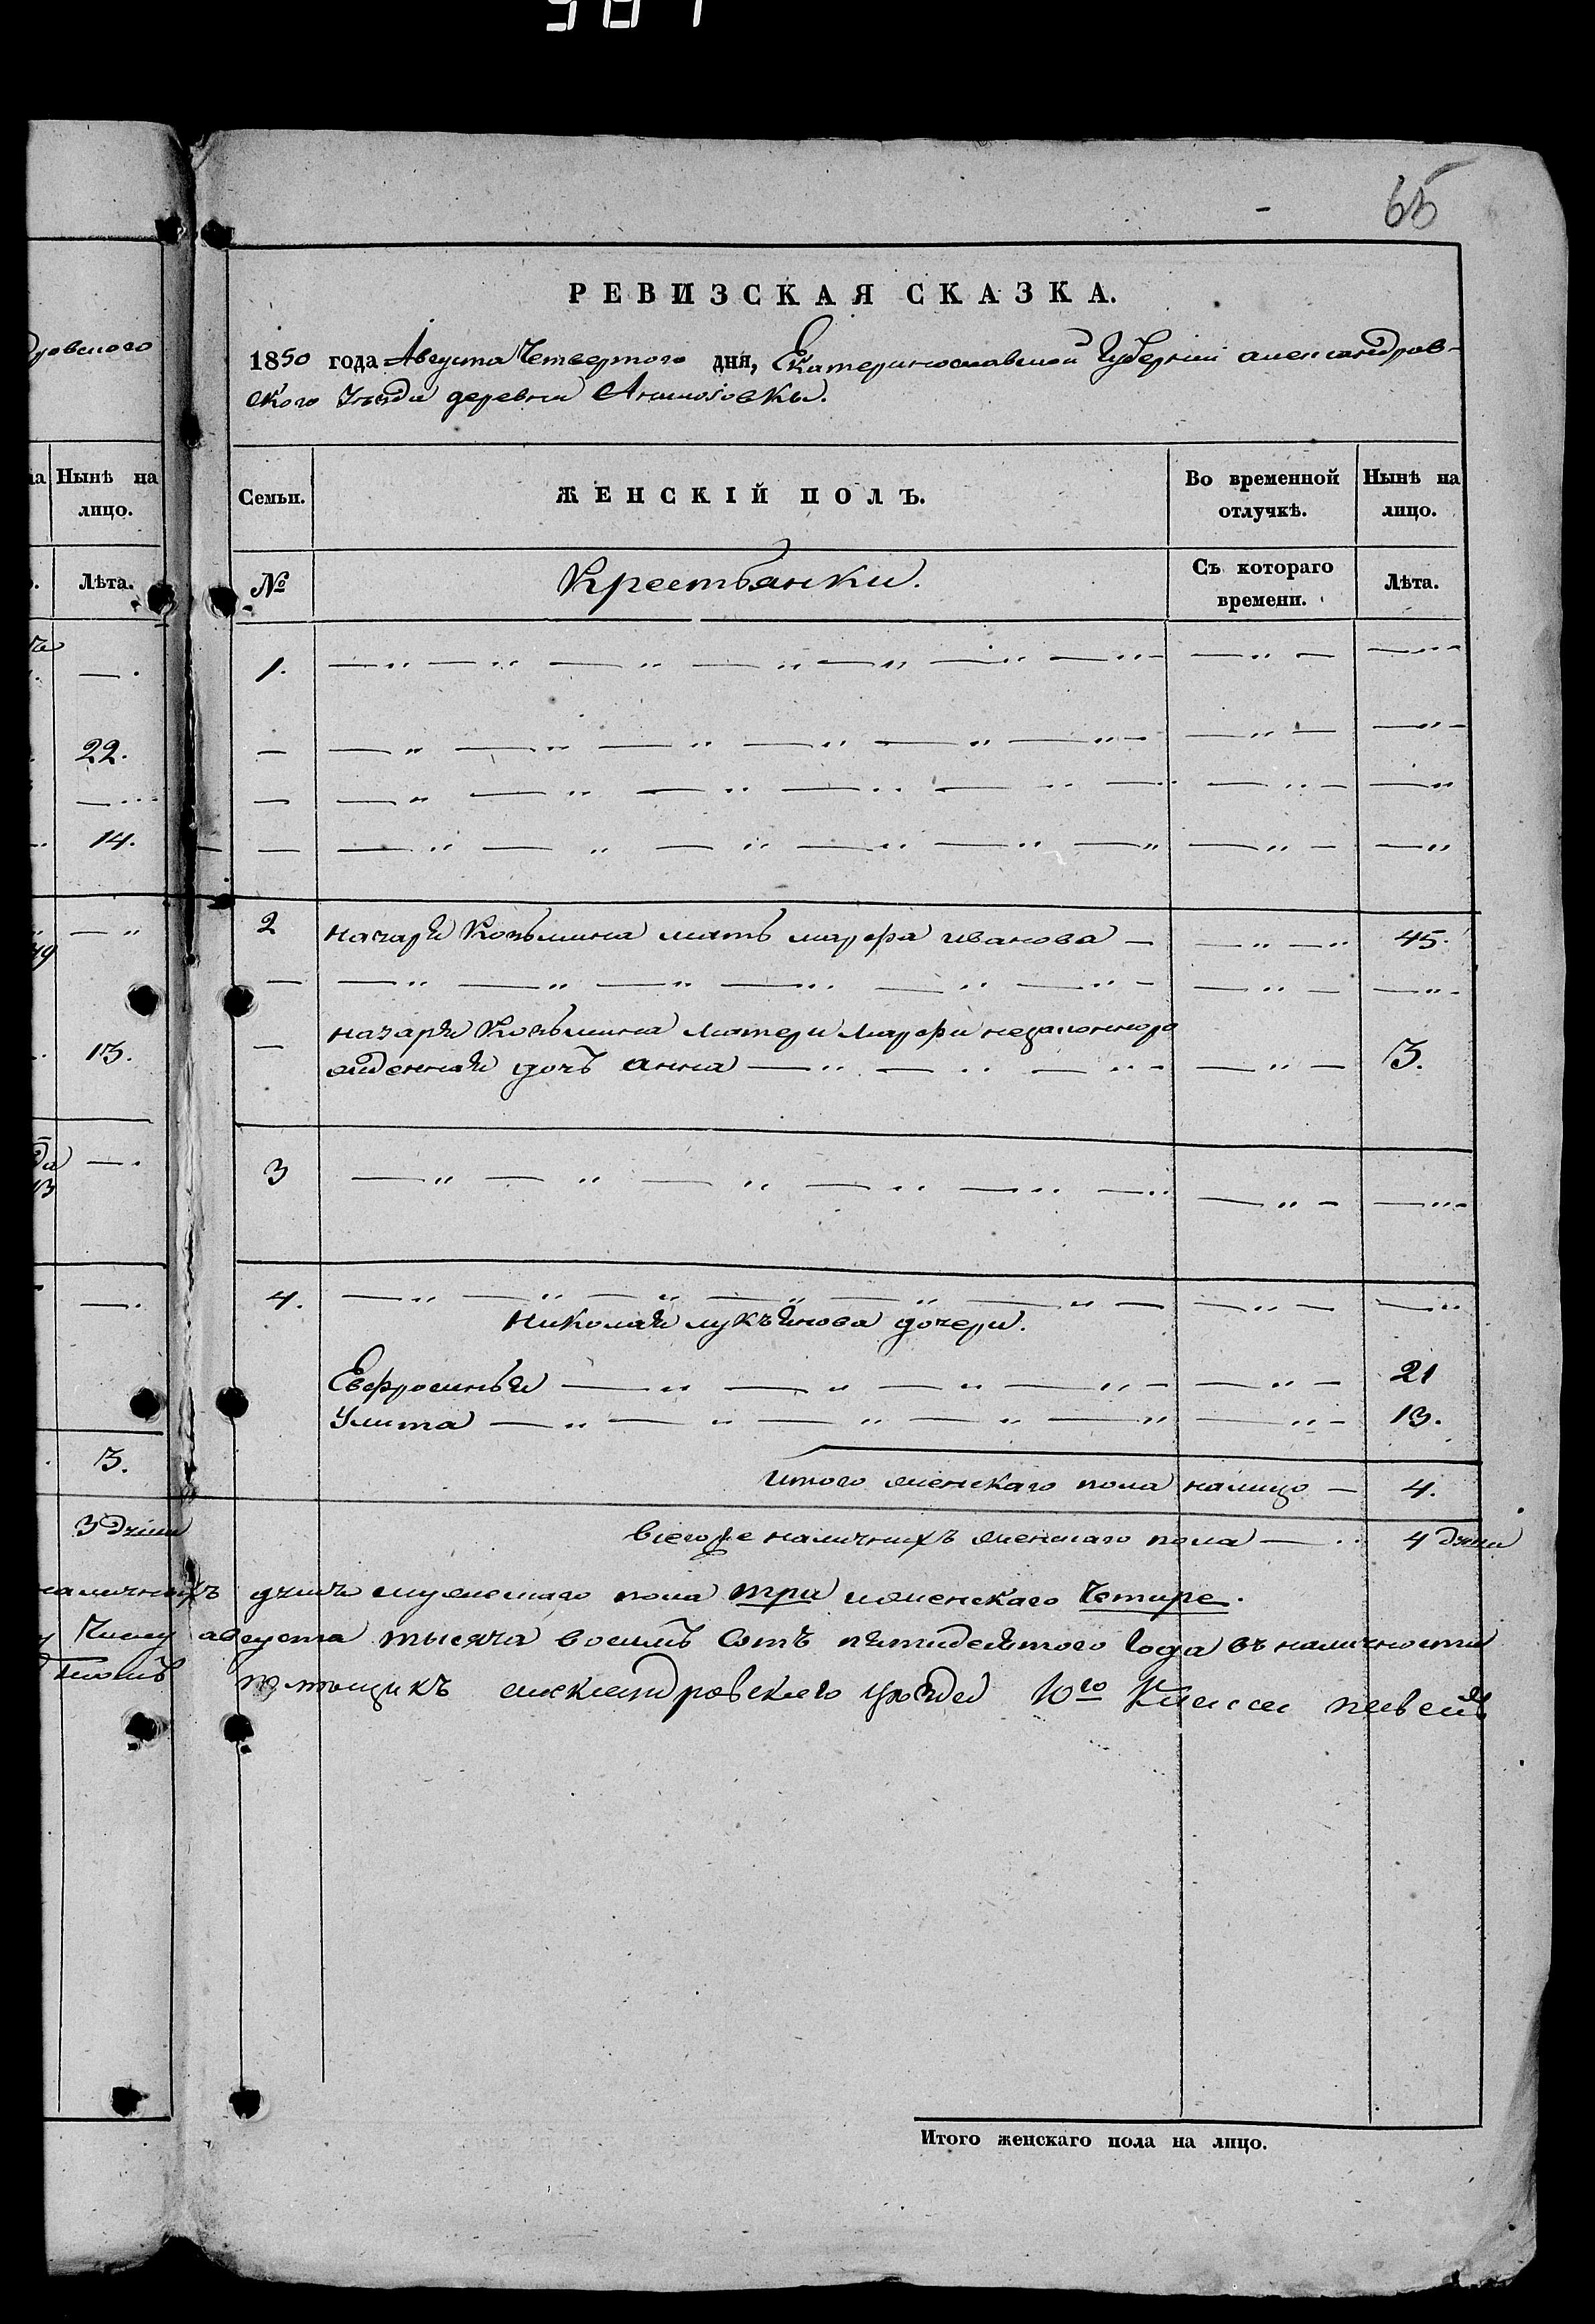 65
РЕВИЗСКАЯ СКАЗКА.
1850 года Августа Четвертого дня, Екатеринославской Губернии александров-
ского Уезда деревни
Семьи. ЖЕНСКІЙ ПОЛЪ. Во временной отлучкѣ. Нынѣ на лицо.
№ Крестьянки. Съ котораго времени. Лѣта.
1.
2 назарія Козьмина мать марфа иванова — 45.
назарія Козьмина матери Марфи незаконноро
жденная дочь анна 3.
3
4.
Николая лукъянова дочери.
Евфросинья 21
Улита 13.
Итого женскаго пола налицо — 4.
всего же наличныхъ женскаго пола — 4 души
наличныхъ душъ мужескаго пола три и женскаго Четире.
Числу августа тысяча восимъ сотъ пятидесятого Года въ наличности
александровского уезда 10го Класса
Итого женскаго пола на лицо.
дровского
Нынѣ на
лицо.
Лѣта.
22.
14.
13.
3.
3 души